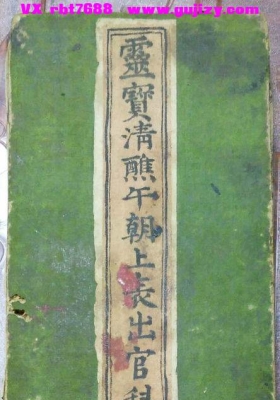 VX rbt7688 www.gujizy.com
靈寶清醮午朝上表出官科